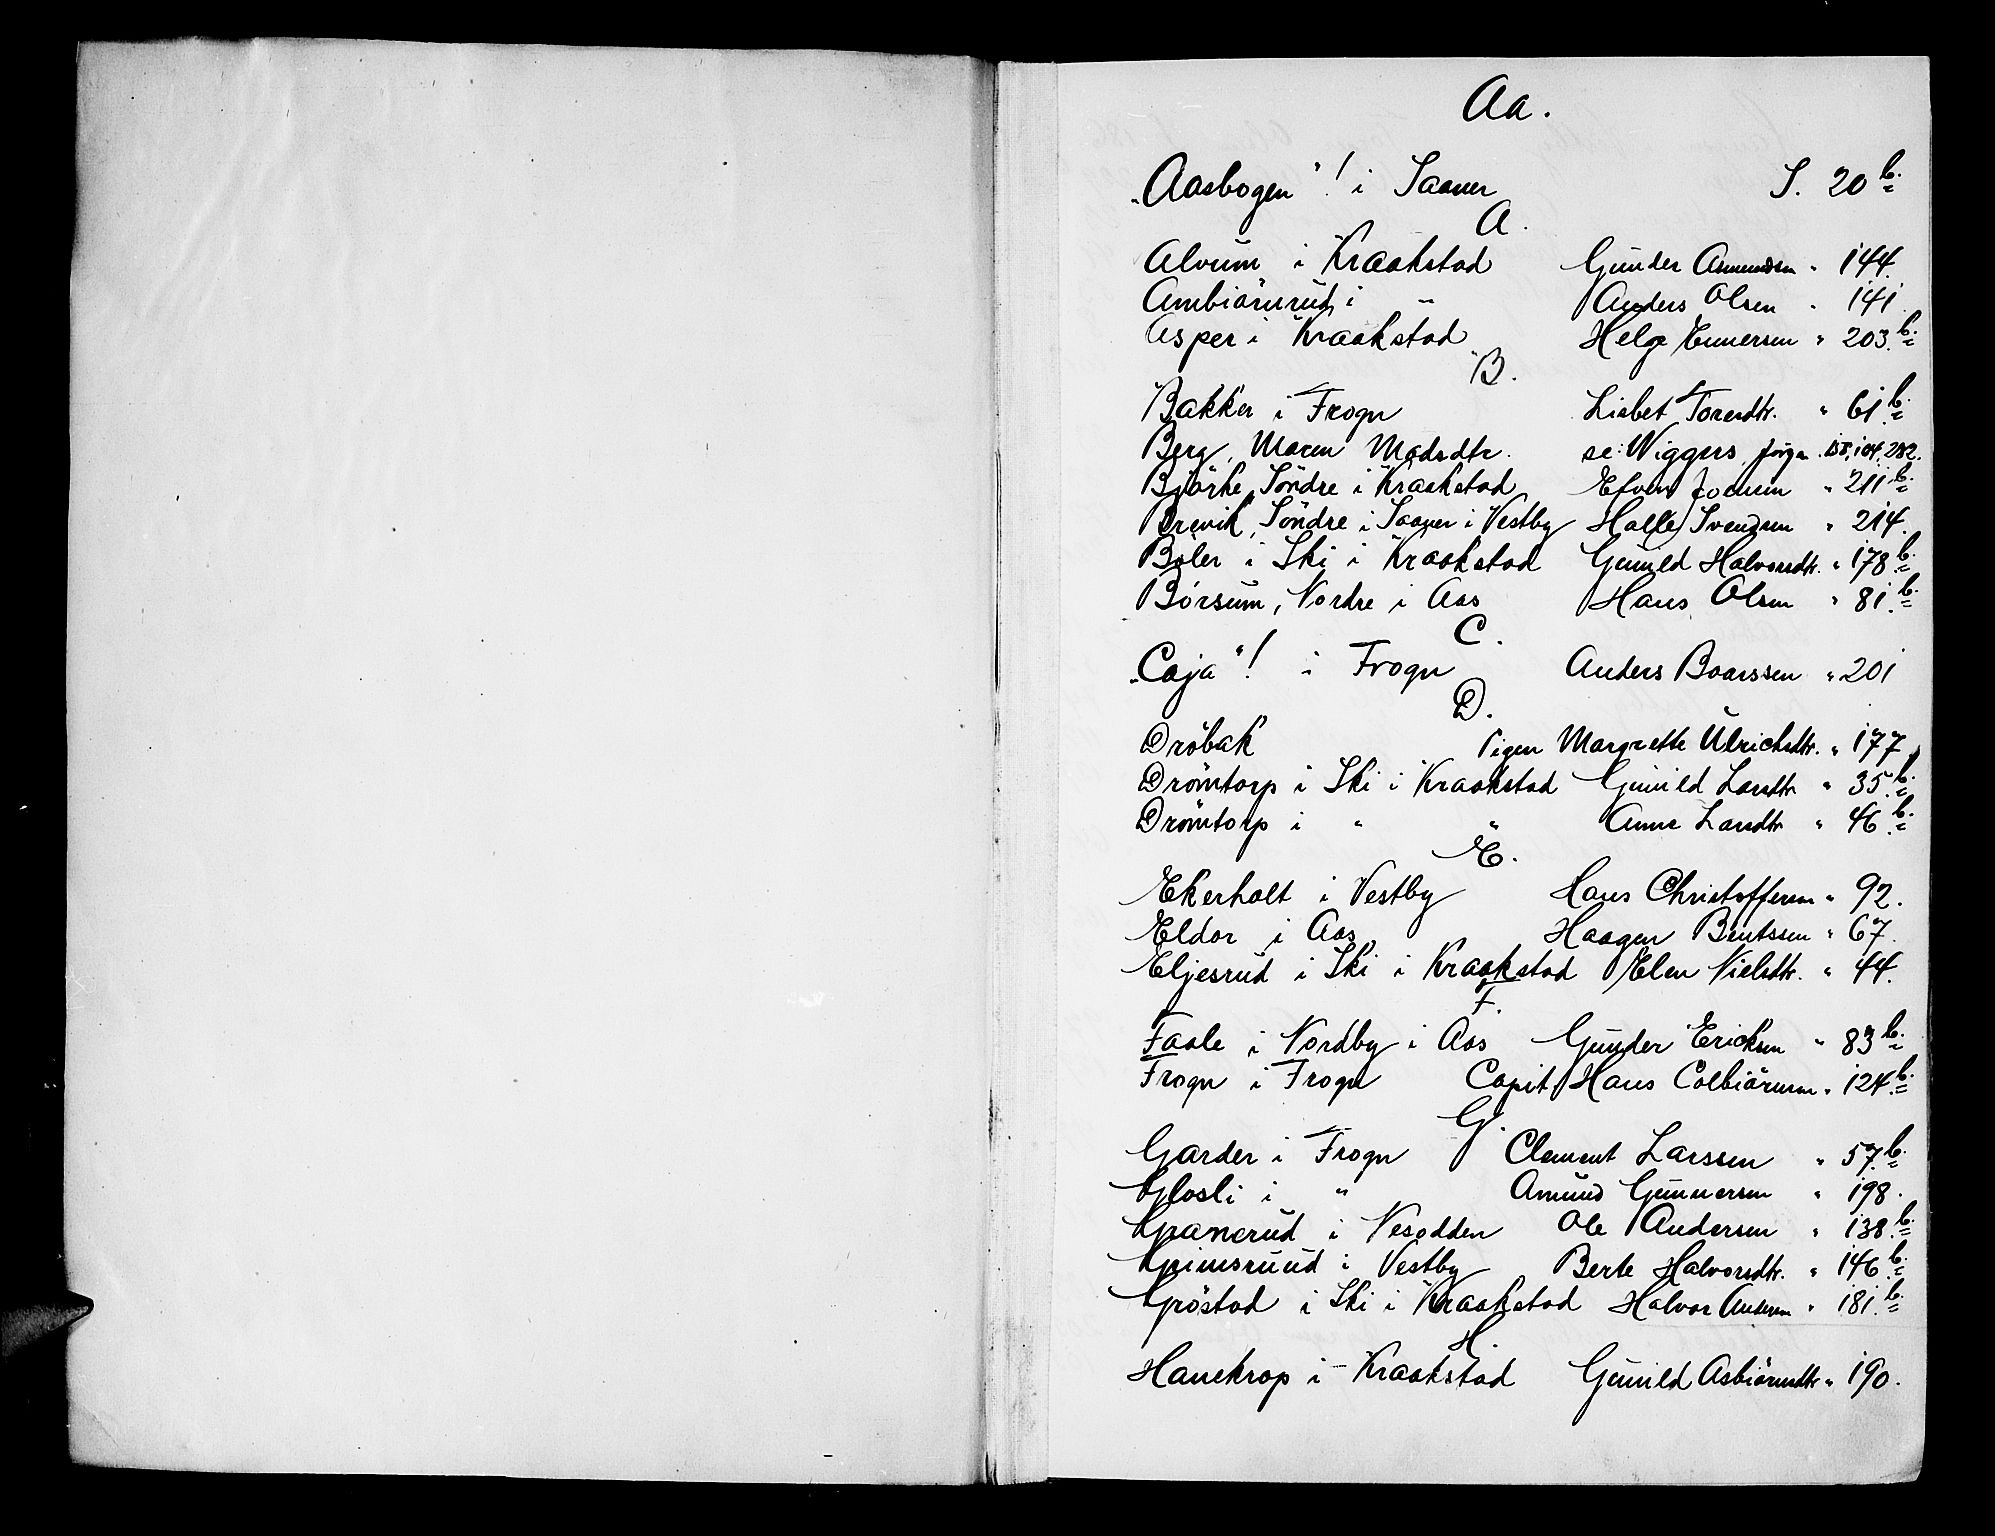 Aa.
„Aasbogen“! i Saaner S. 20 b.
A.
Alvum i Kraakstad Gunder Amundsen " 144.
Ambiörnrud i " Anders Olsen " 141
Asper i Kraakstad Helge Ennersen " 203. b.
B.
Bakker i Frogn Lisbet Toresdtr. " 61. b.
Berg, Maren Madsdtr. se: Wiggers, Jörgen
Björke, Söndre i Kraakstad Joensen " 211 b.
Brevik, Söndre i Saaner i Vestby Halle Svendsen " 214.
Böler i Ski i Kraakstad Gunild Halvorsdtr. " 178. b.
Börsum, Nordre i Aas Hans Olsen " 81. b.
C.
„Caja“! i Frogn Anders Baarssen " 201
D.
Dröbak Pigen Margrette Ulrichsdtr. " 177
Drömtorp i Ski i Kraakstad Gunild Larsdtr " 35. b.
Drömtorp i " " Anne Larsdtr " 46. b.
E.
Ekerholt i Vestby Hans Christoffersen " 92.
Eldor i Aas Haagen Bentssen " 67.
Eljesrud i Ski i Kraakstad Elen Nielsdtr. " 44.
F.
Faale i Nordby i Aas Gunder Ericksen " 83 b.
Frogn i Frogn Capit. Hans Colbiörnsen " 124. b.
G.
Garder i Frogn Clement Larssen " 57. b.
Glosli i " Amund Gunnersen " 198.
Granerud i Nesodden Ole Andersen " 138. b.
Grimsruud i Vestby Berte Halvorsdtr. " 146. b.
Gröstad i Ski i Kraakstad Halvor Andersen " 181. b.
H.
Hanekrop i Kraakstad Gunild Asbiörnsdtr " 190.